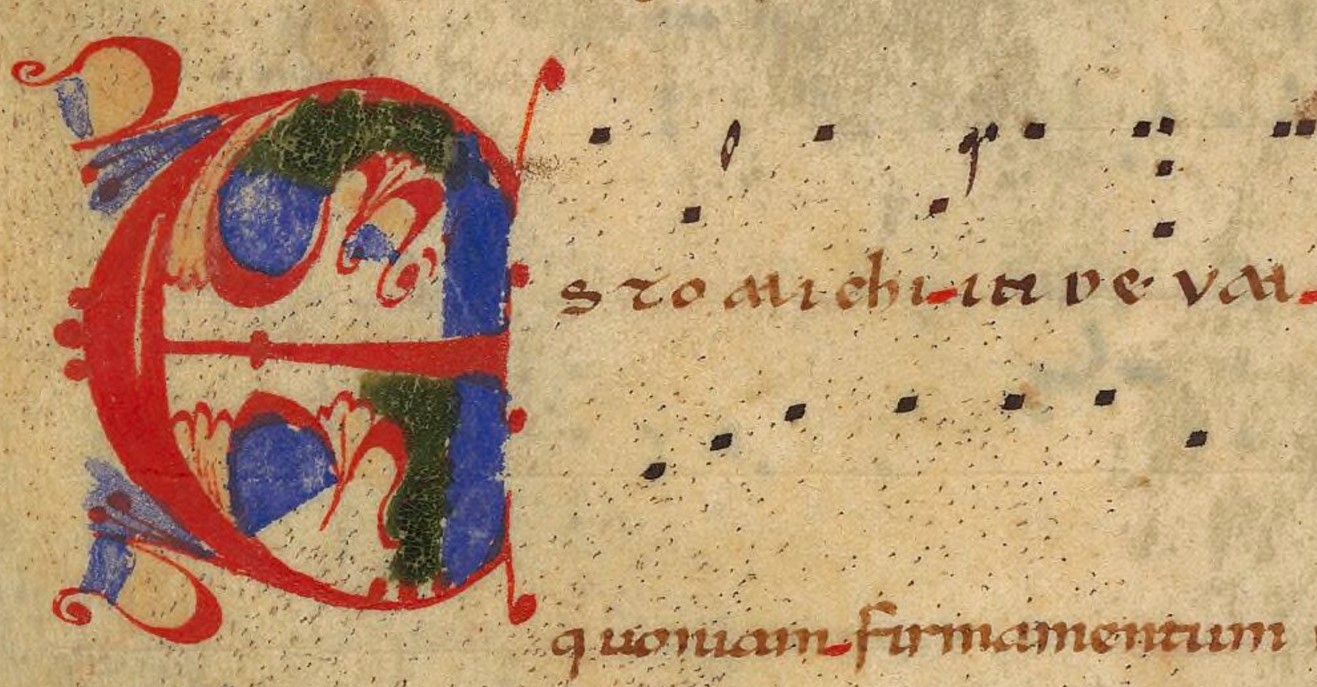 ESTO MICHI IN DE VM
quoniam firmamentum